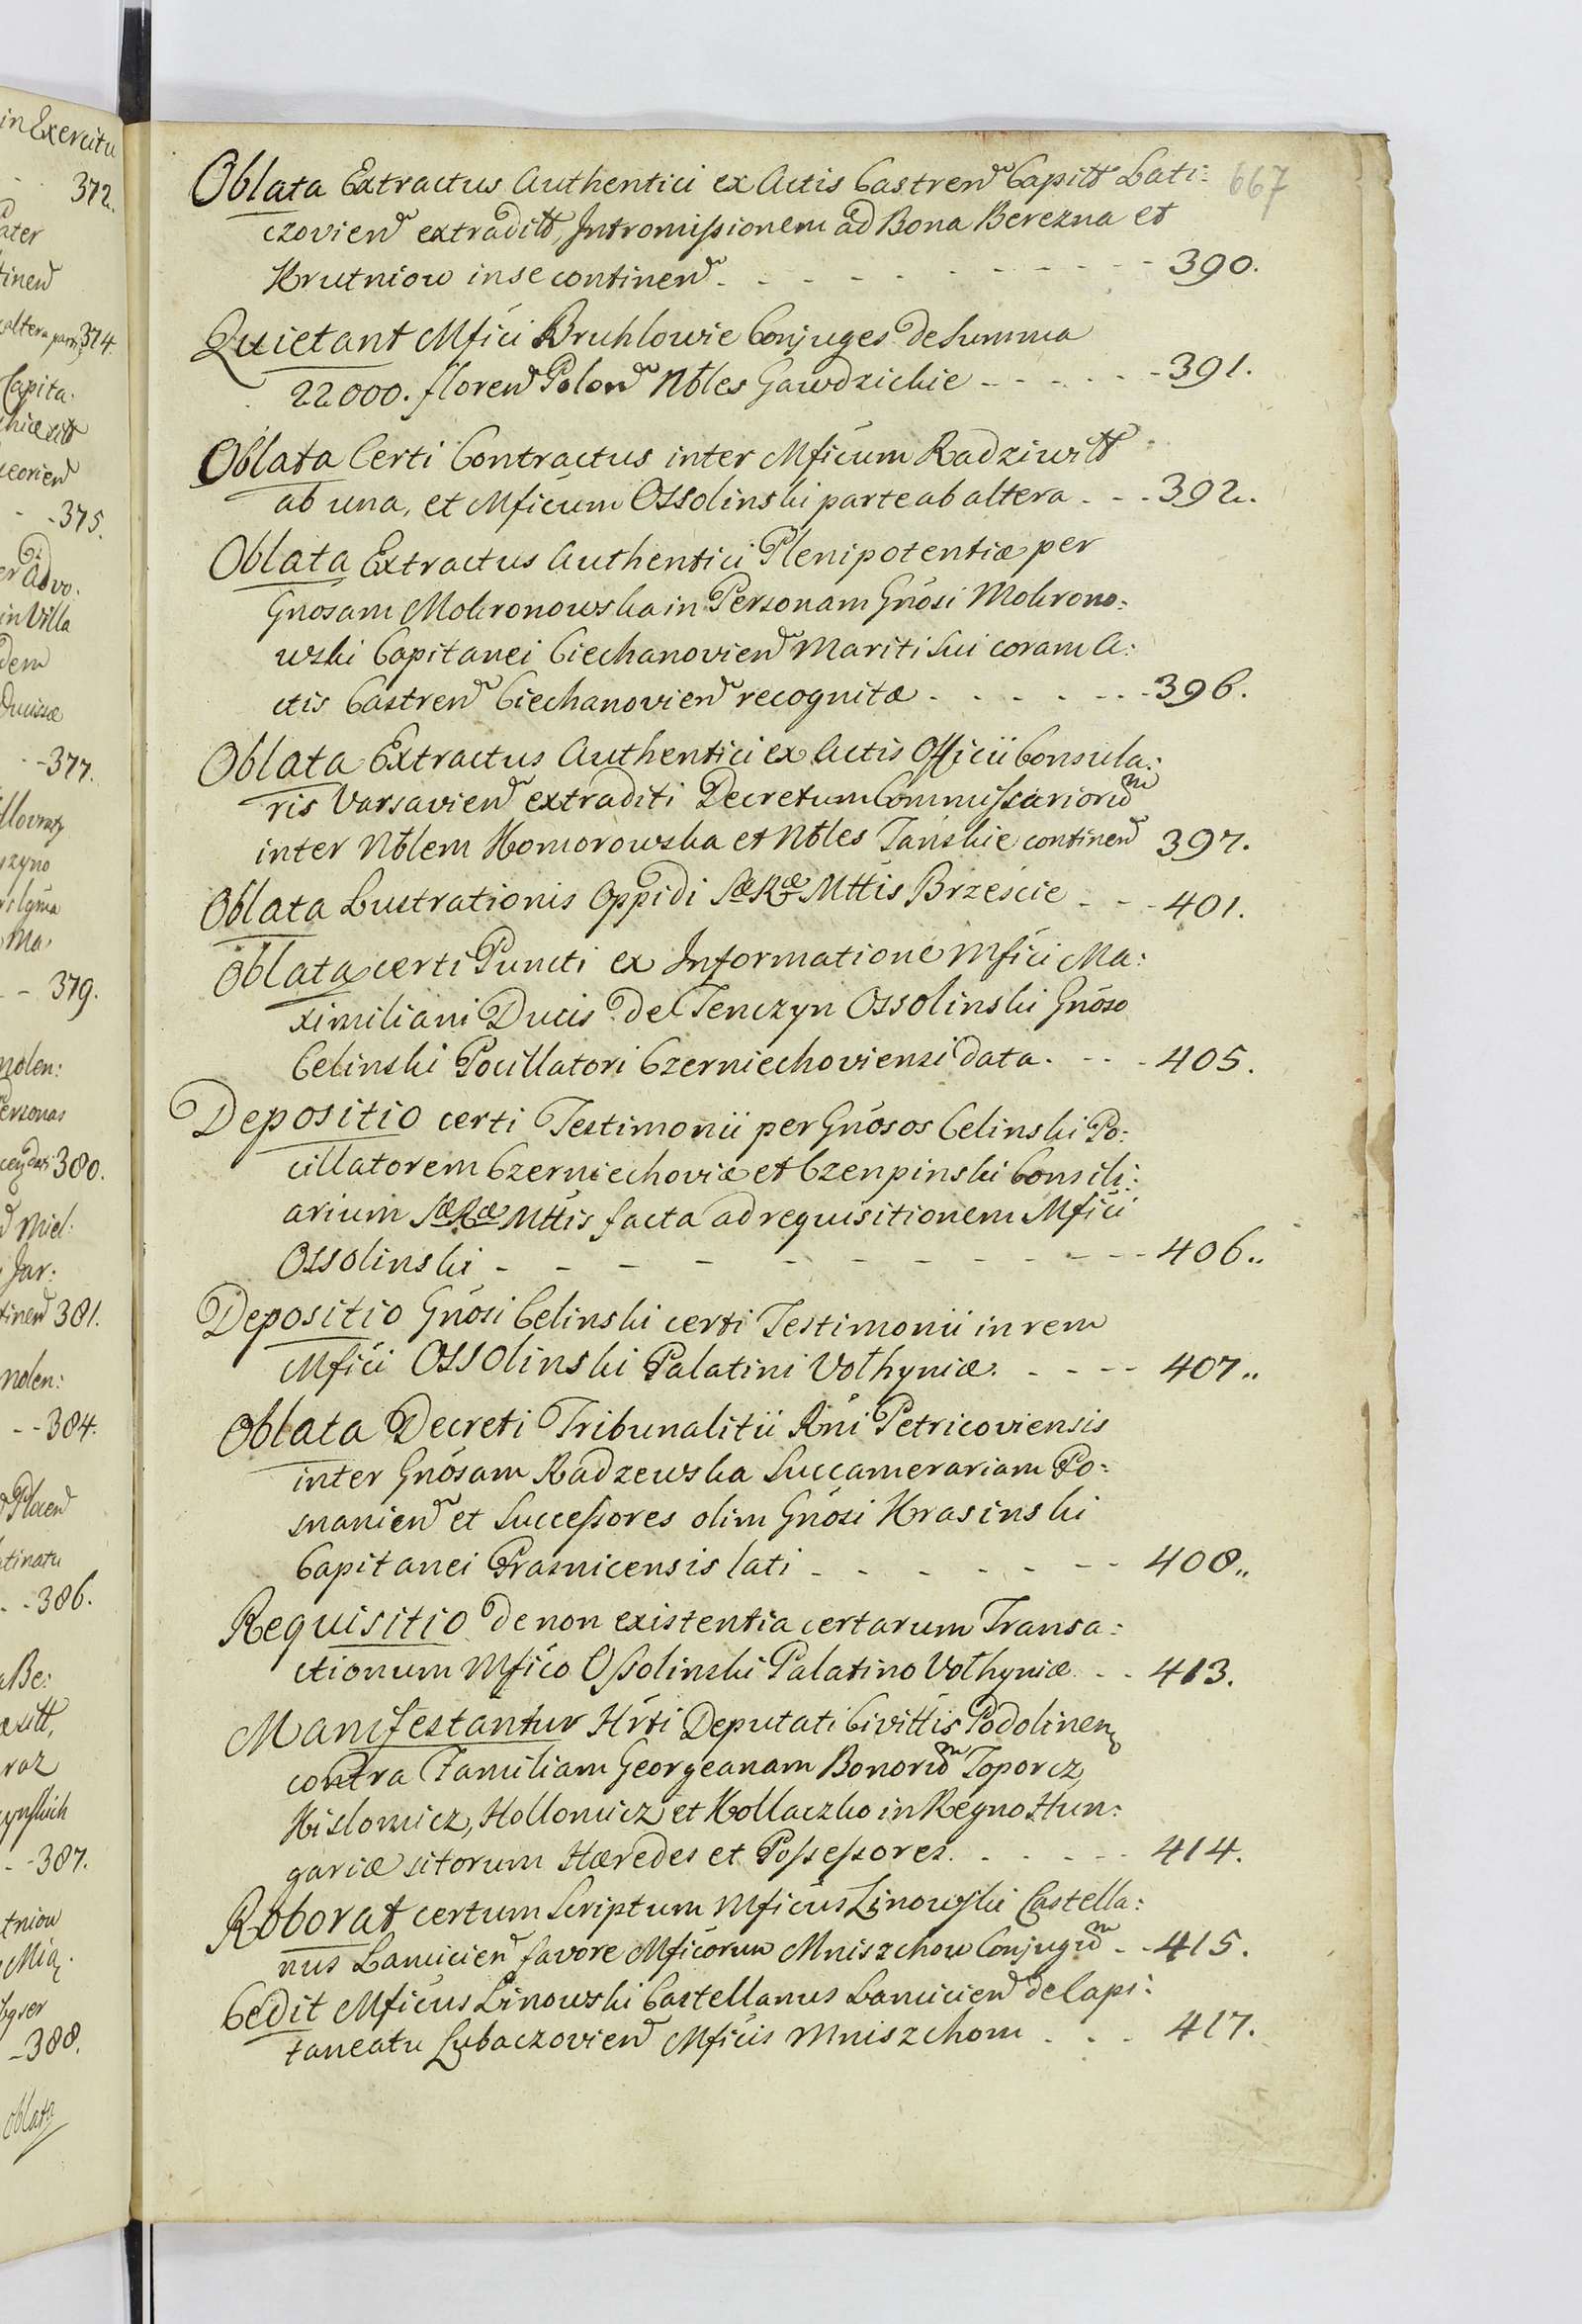 Oblata Extractus Authentici ex Actis Castren Capitt Lati:
667
czovien extraditt, Intromissionem ad Bona Berezna et
Krutniow in se continen - - - - - - - - 390.
Quietant Mfici Bruhlowie Conjuges de Summa
22000. floren Polon Nbles Gawdzickie - - - - - 391.
Oblata Certi Contractus inter Mficum Radziwitt
ab una, et Mficum Ossolinski parte ab altera - - - 392.
Oblata Extractus Authentici Plenipotentiæ per
Gnosam Mokronowska in Personam Gnosi Mokrono:
wski Capitanei Ciechanovien Mariti Sui coram A:
ctis Castren Ciechanovien recognitæ - - - - - - 396.
Oblata Extractus Authentici ex Actis Officii Consula:
ris Varsavien extraditi Decretum Commissarior̃um
inter Nblem Komorowska et Nbles Tańskie continen 397.
Oblata Lustrationis Oppidi Sæ Ræ Mttis Brzescie - - - 401.
Oblata certi Puncti ex Informatione Mfici Ma:
ximiliani Ducis de Tenczyn Ossolinski Gnoso
Celinski Pocillatori Czerniechoviensi data. - - - 405.
Depositio certi Testimonii per Gnosos Celinski Po:
cillatorem Czerniechoviæ et Czenpinski Consili:
arium Sæ Ræ Mttis facta ad requisitionem Mfici
Ossolinski - - - - - - - - - - 406..
Depositio Gnosi Celinski certi Testimonii in rem
Mfici Ossolinski Palatini Volhyniæ. - - - - 407..
Oblata Decreti Tribunalitii Rni Petricoviensis
inter Gnosam Radzewska Succamerariam Po:
snanien et Successores olim Gnosi Krasinski
Capitanei Prasnicensis lati - - - - - - 408..
Requisitio de non existentia certarum Transa:
ctionum Mfico Ossolinski Palatino Volhyniæ - - 413.
Manifestantur Hrti Deputati Civittis Podolinen
contra Familiam Georgeanam Bonorum Toporcz,
Kislomicz, Hollomicz et Kollaczko in Regno Hun:
gariæ sitorum Hæredes et Possessores. - - - - - 414.
Roborat certum Scriptum Mficus Linowski Castella:
nus Lamicien favore Mficorum Mniszchow Conjugum - - 415.
Cedit Mficus Linowski Castellanus Lamicien de Capi:
taneatu Lubaczovien Mficis Mniszchom - - - 417.
in Exercitu
372.
374.
Capita.
375.
in Villa
377.
379.
380.
Miel:
Jar:
381.
384.
386.
387.
388.
Oblata